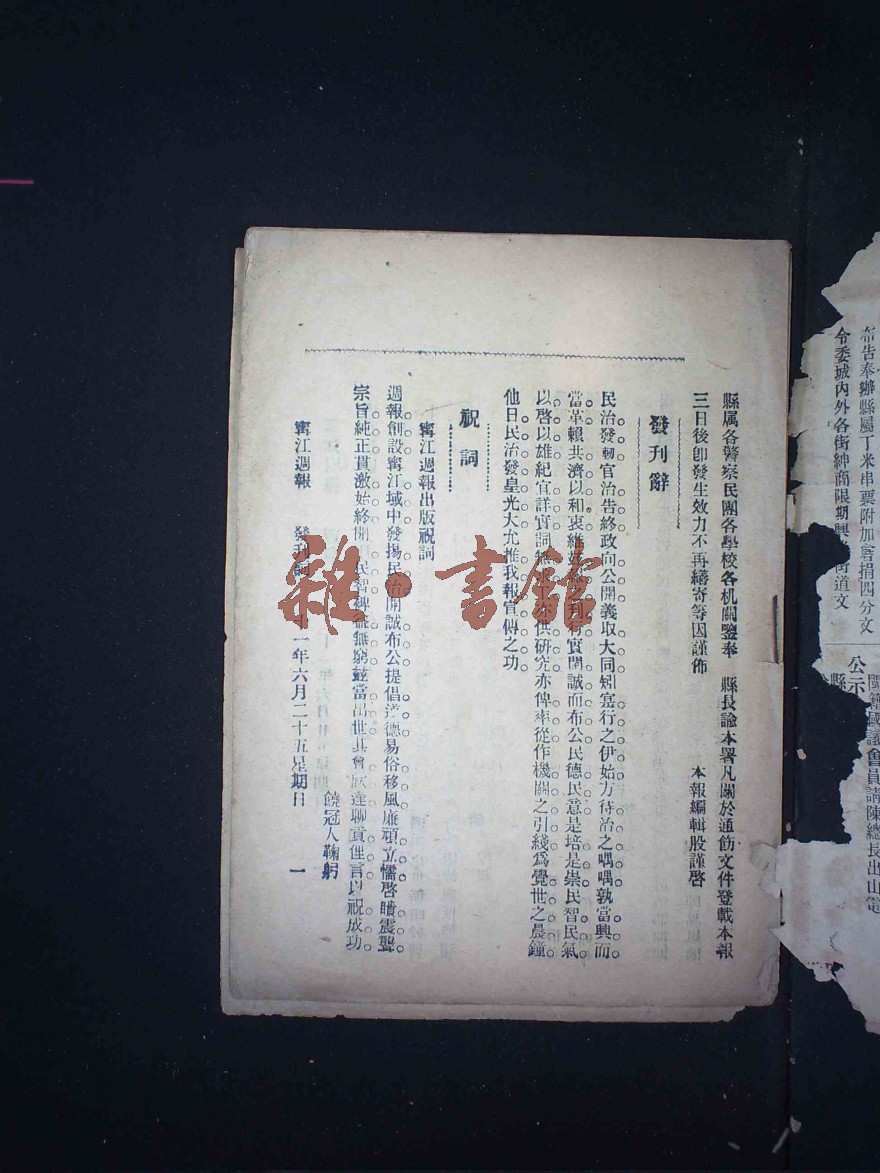 縣属各警察民團各學校各机關鑒奉 縣長諭本署凡關於通飭文件登載本報
三日後卽發生效力不再繕寄等因謹佈 本報編輯股謹啓
發刊辭
民治發軔官治告終政向公開義取大同矧寔行之伊始方待治之喁喁孰當興而
當革賴共濟以和衷維 刊 實開誠而布公民德民意是培是崇民智民氣
以啓以雄紀宜詳實詞 供研究亦俾率從作機關之引綫爲覺世之晨鐘
他日民治發皇光大允推我報宣傳之功
祝詞
寗江週報出版祝詞
週報創設寗江域中發揚民治開誠布公提倡道德易俗移風廉頑立懦啓瞶震聾
宗旨純正貫激始終開 民智裨益無窮茲當出世其會 逢聊貢俚言以祝成功
饒冠人鞠躬
寗江週報 發刊 十一年六月二十五星期日 一
布告奉辦縣屬丁米串票附加署捐四分文
令委城內外各街紳商限期興 街道文
公示
閩籍國議會員請陳總長出山電
縣
雜·書館